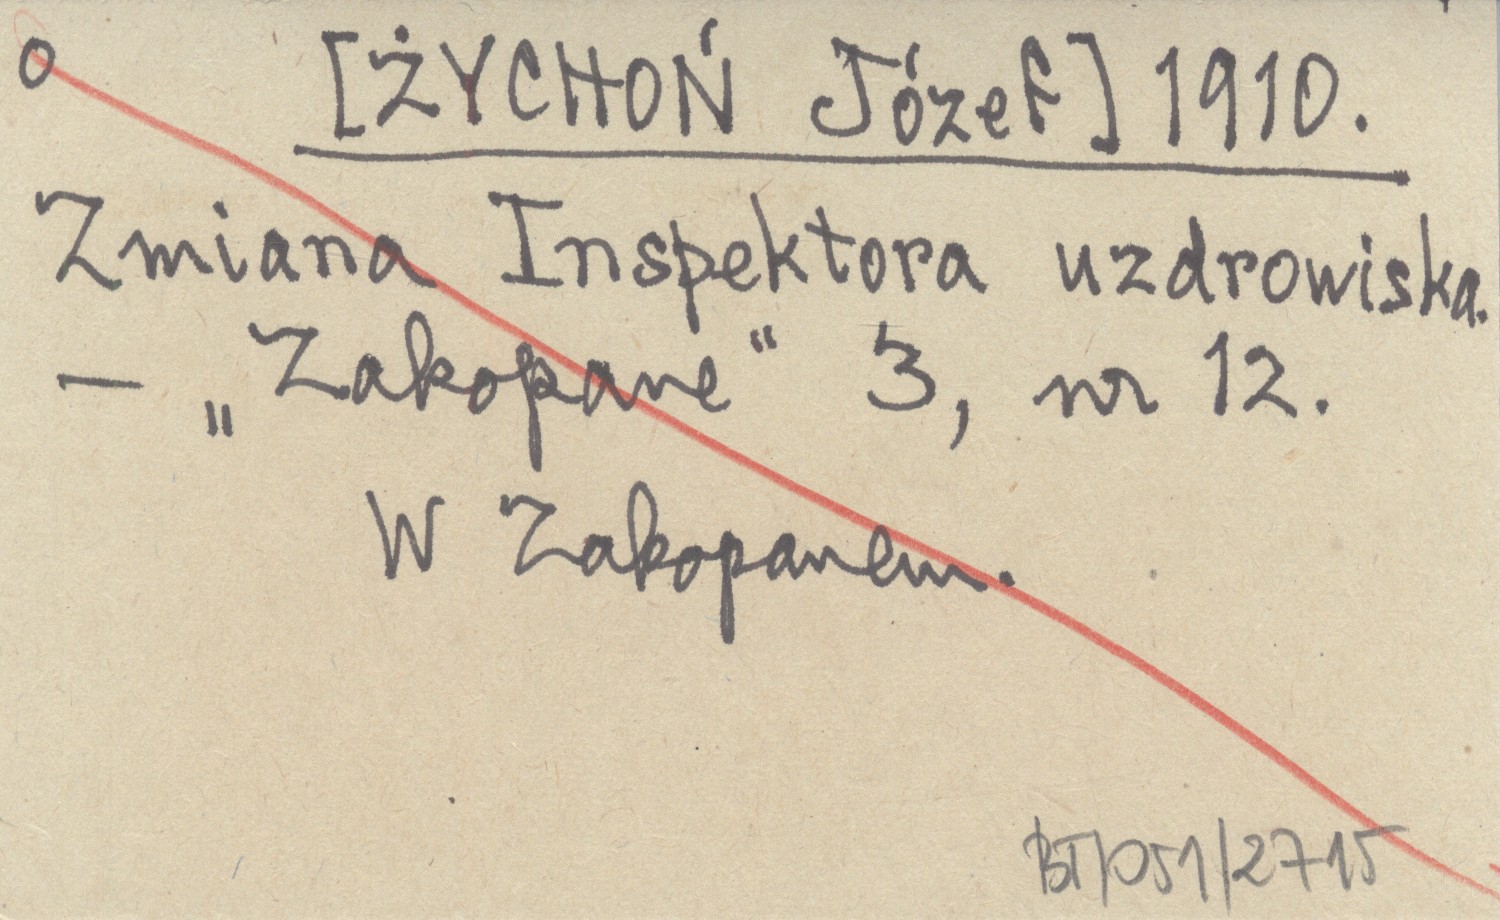 o [ŻYCHOŃ Józef] 1910.
Zmiana Inspektora uzdrowiska.
— „Zakopane“ 3, nr 12.
W Zakopanem.
BT/051/2715